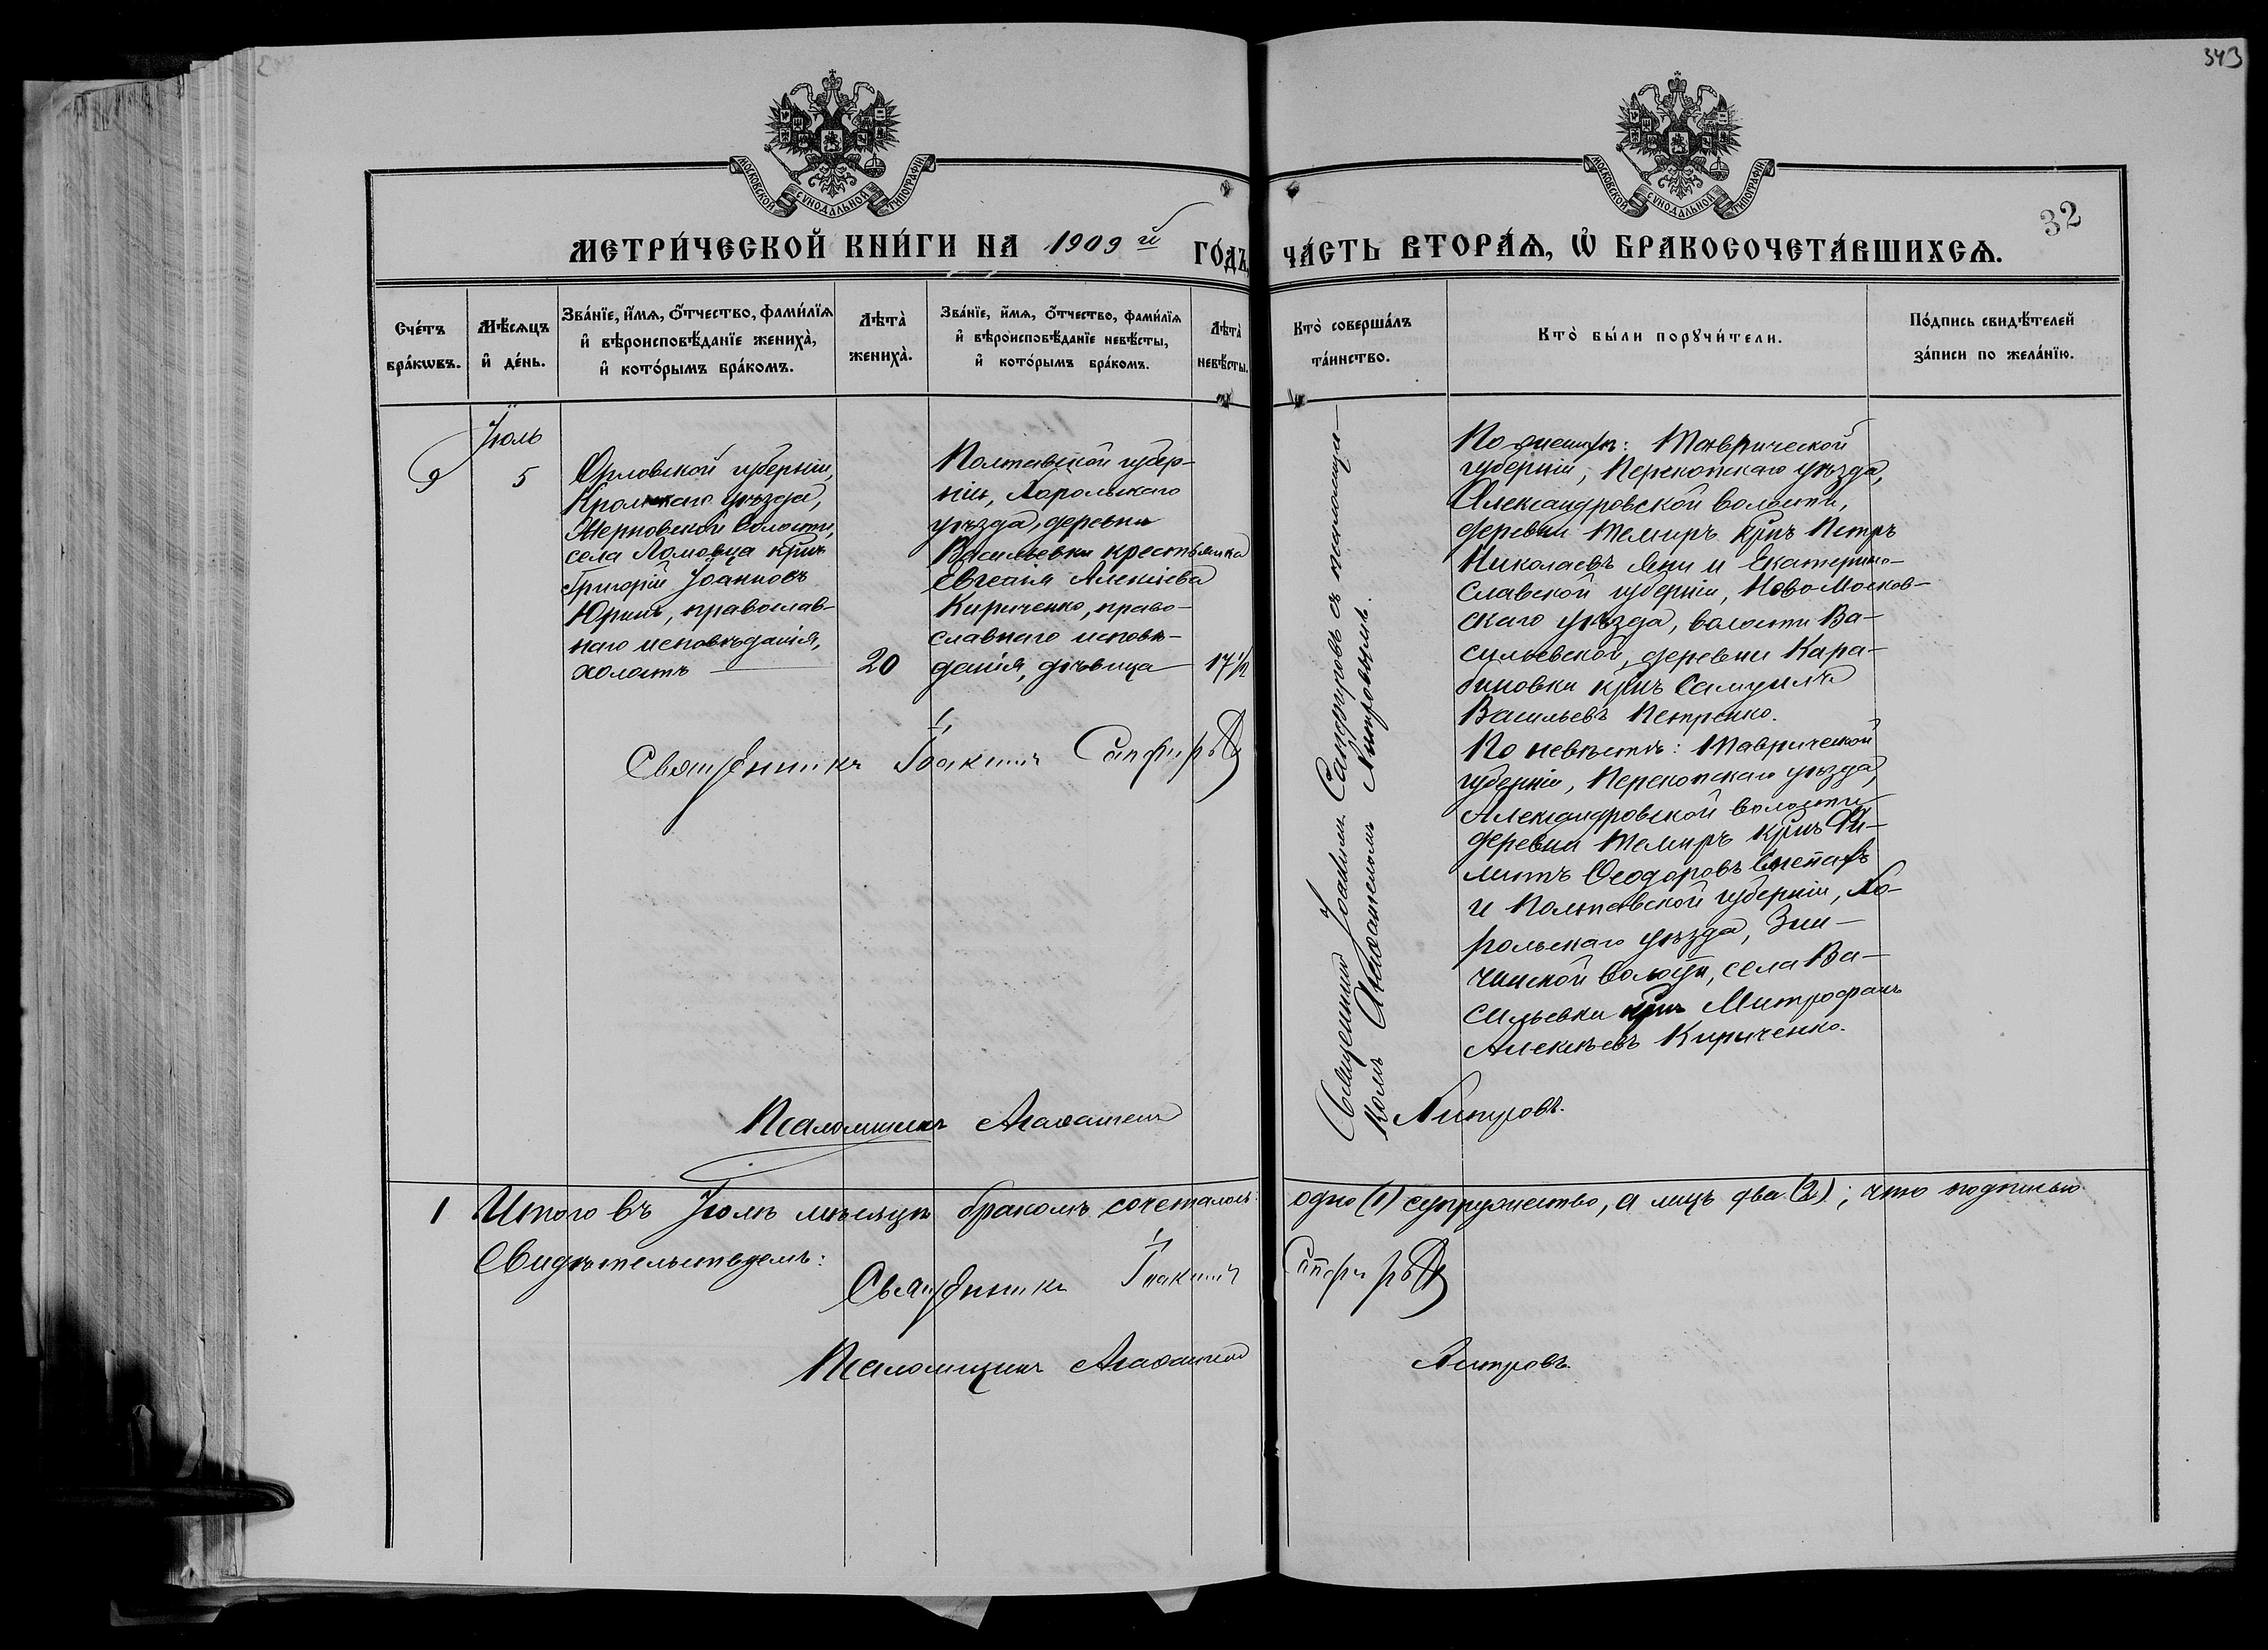 343
32
МОСКОВСКОЙ СѴНОДАЛЬНОЙ ТИПОГРАФІИ
МОСКОВСКОЙ СѴНОДАЛЬНОЙ ТИПОГРАФІИ
МЕТРИ́ЧЕСКОЙ КНИ́ГИ НА 1909й ГО́ДЪ,
ЧА́СТЬ ВТОРА́Ѧ, Ѽ БРАКОСОЧЕТА́ВШИХСѦ.
Сче́тъ бра́кѡвъ.
Мѣ́сѧцъ и҆ де́нь.
Зва́нїе, и҆́мѧ, ѻ҆́тчество, фами́лїѧ
и҆ вѣроисповѣ́данїе жениха̀,
и҆ кото́рымъ бра́комъ.
Лѣта̀ жениха̀.
Зва́нїе, и҆́мѧ, ѻ҆́тчество, фами́лїѧ
и҆ вѣроисповѣ́данїе невѣ́сты,
и҆ кото́рымъ бра́комъ.
Лѣта̀ невѣ́сты.
Кто̀ соверша́лъ
та́инство.
Кто̀ бы́ли порꙋчи́тели.
По́дпись свидѣ́телей
за́писи по жела́нїю.
9
Іюль
5
Орловской губерніи,
Кромскаго уѣзда,
Жерновской волости,
села Ломовца крнъ
Григорій Іоанновъ
Юринъ, православ-
наго исповѣданія,
холостъ
20
Полтавской губер-
ніи, Хорольскаго
уѣзда, деревни
Васильевки крестьянка
Евгенія Алексіева
Кириченко, право-
славнаго исповѣ-
данія, дѣвица
17½
Священникъ Іоакимъ Сапфировъ
Псаломщикъ Агаѳангелъ Митровъ.
Священникъ Іоакимъ Сапфировъ съ псаломщи-
комъ Агаѳангеломъ Митровымъ.
По женихѣ: Таврической
губерніи, Перекопскаго уѣзда,
Александровской волости,
деревни Темиръ крнъ Петръ
Николаевъ и Екатерино-
славской губерніи, Ново-Москов-
скаго уѣзда, волости Ва-
сильевской, деревни Кара-
биновки крнъ Самуилъ
Васильевъ Петренко.
По невѣстѣ: Таврической
губерніи, Перекопскаго уѣзда,
Александровской волости
деревни Темиръ крнъ Фи-
липпъ Ѳеодоровъ
и Полтавской губерніи, Хо-
рольскаго уѣзда,
волости, села Ва-
сильевки крнъ Митрофанъ
Алексѣевъ Кириченко.
1 Итого въ Іюлѣ мѣсяцѣ бракомъ сочеталось одно (1) супружество, а лицъ два (2); что подписью
свидѣтельствуемъ:
Священникъ Іоакимъ Сапфировъ
Псаломщикъ Агаѳангелъ Митровъ.